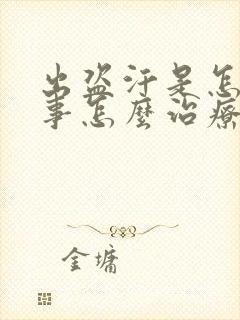 出盗汗是怎
事怎麽治療
金墉